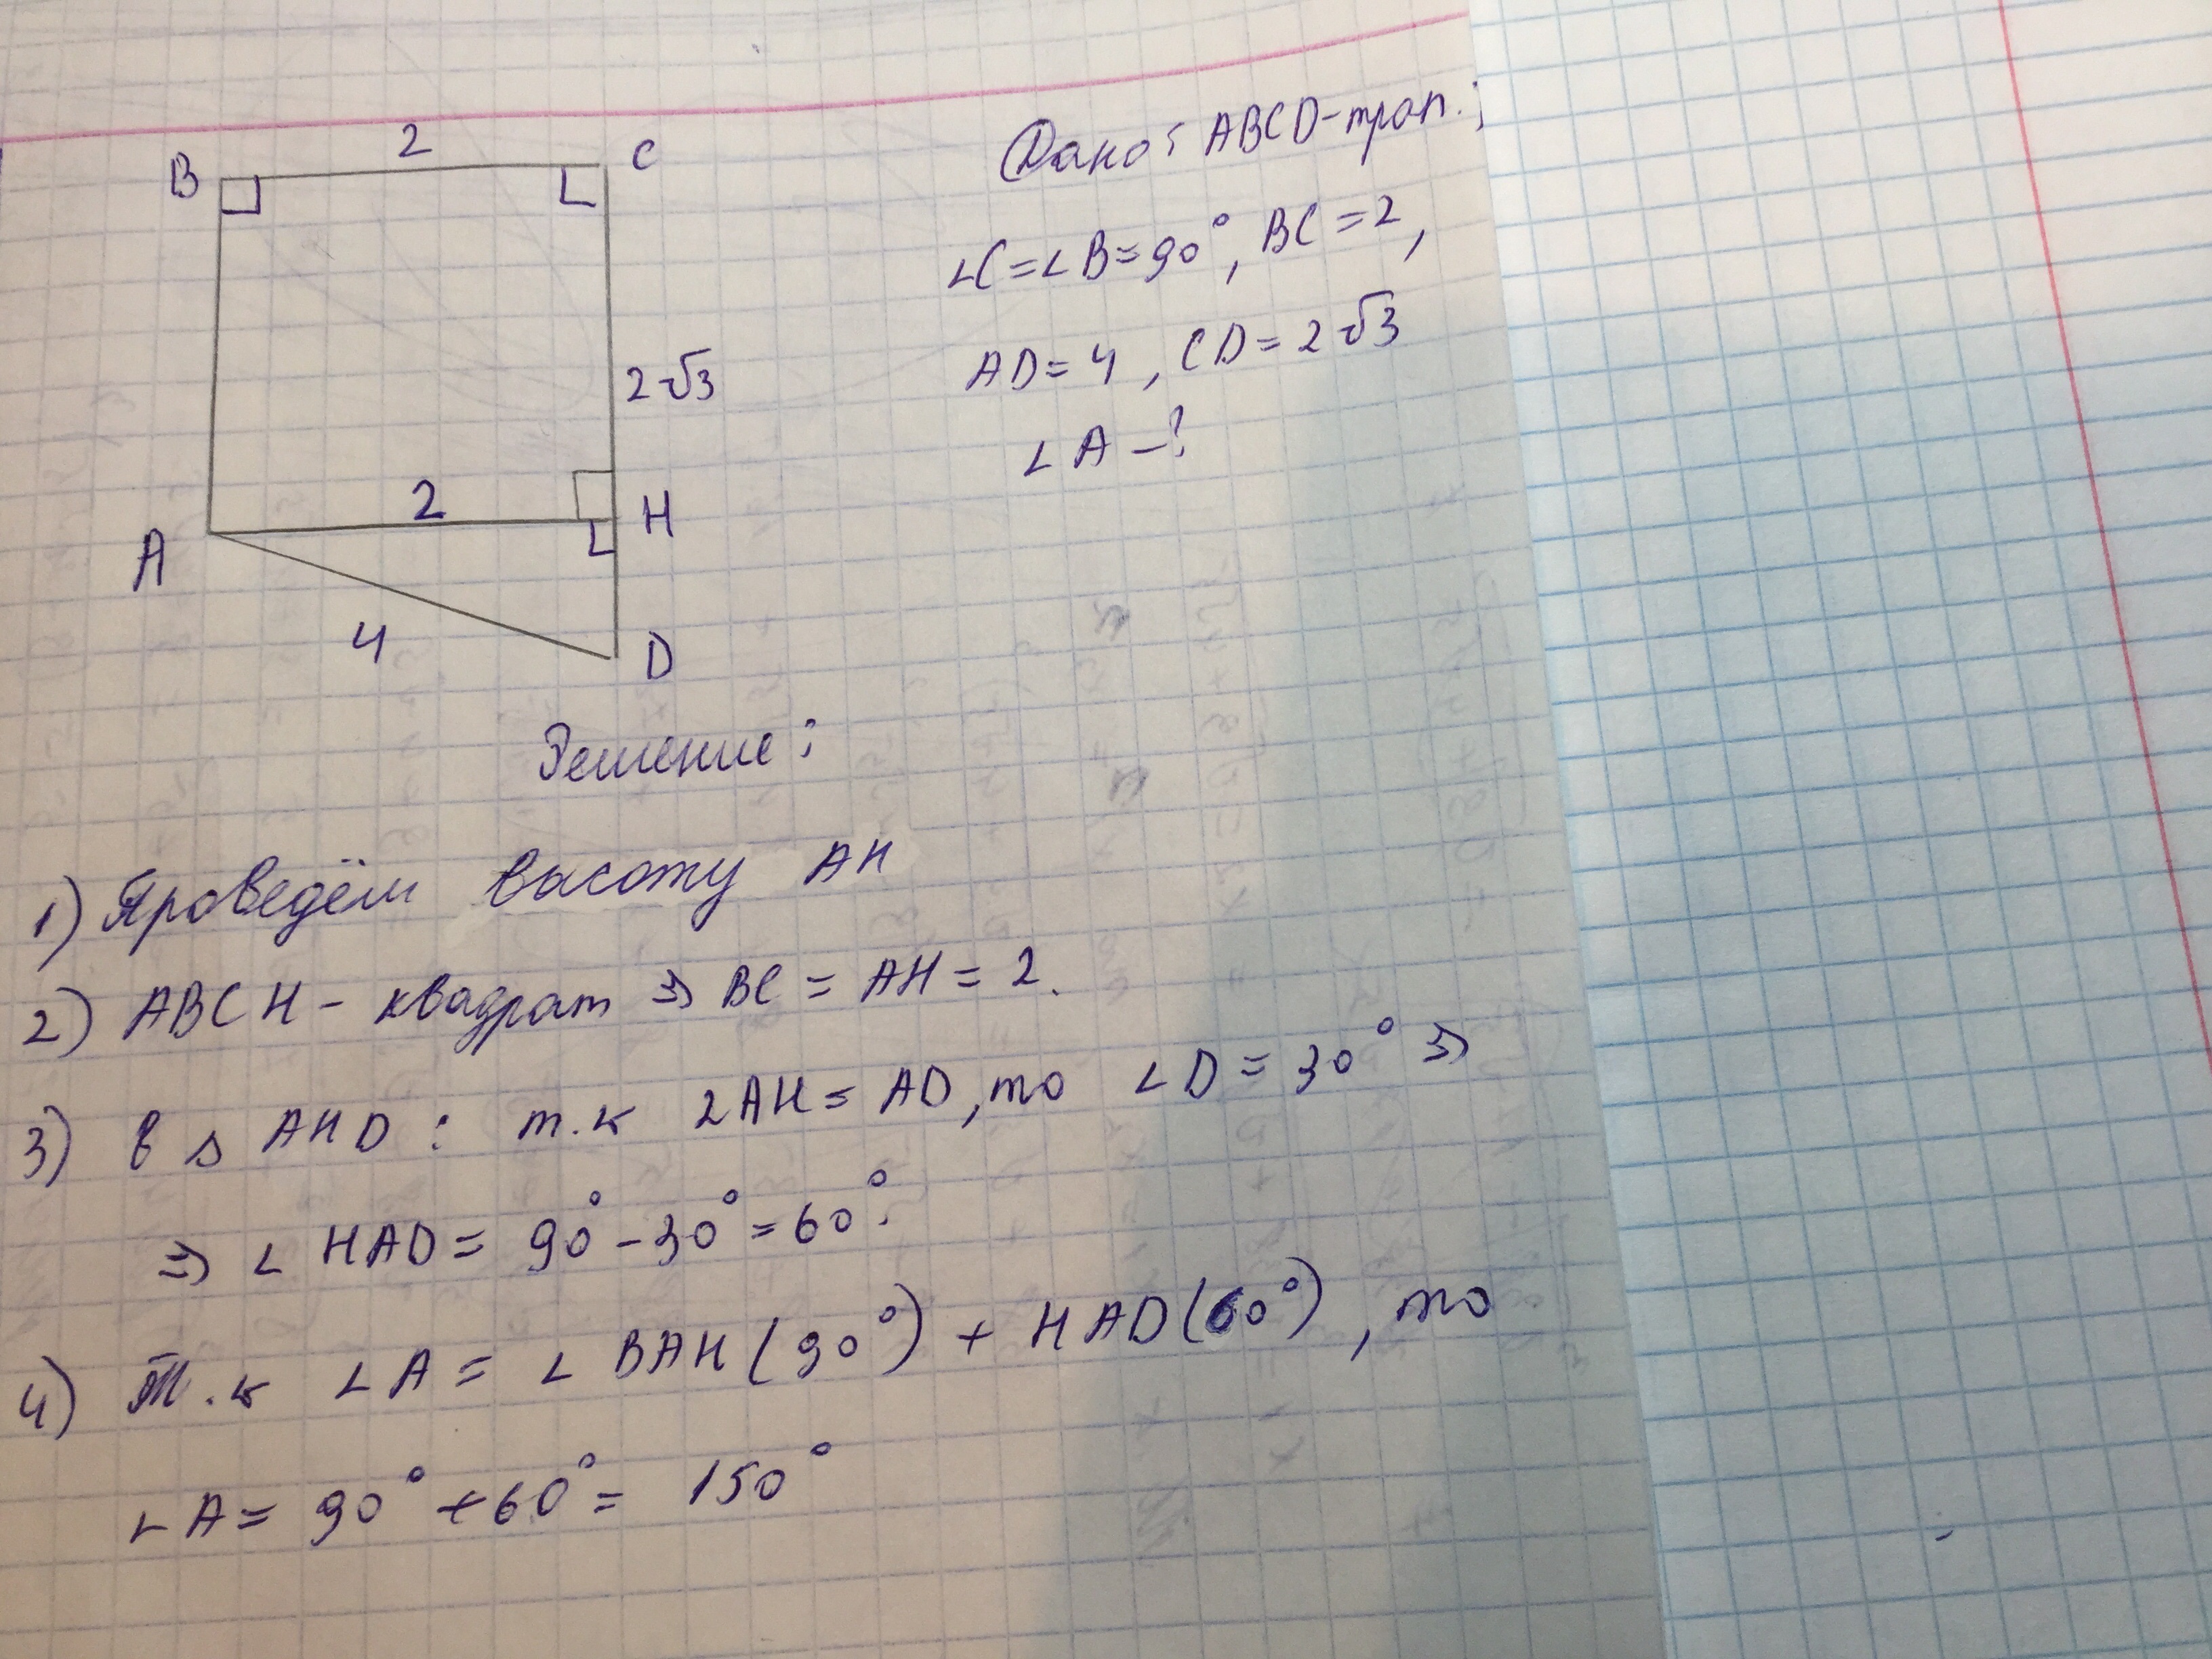 B 2 C
2√3
2 H
A
4 D
Дано: ABCD-трап.;
∠C=∠B=90°, BC=2,
AD=4, CD=2√3
∠A-?
Решение:
1) Проведём высоту AH
2) ABCH - квадрат ⇒ BC = AH = 2.
3) В △ AHD: т.к 2AH = AD, то ∠D = 30° ⇒
⇒ ∠ HAD = 90° - 30° = 60°.
4) Т.к ∠A = ∠ BAH (90°) + HAD (60°), то
∠A = 90° + 60° = 150°